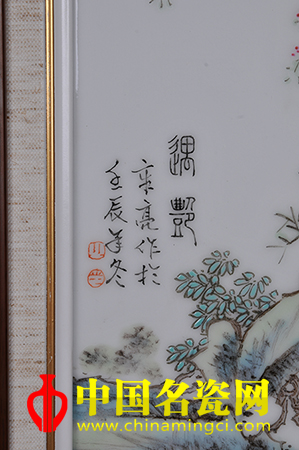 遇艷
亮作於
壬辰年冬
中国名瓷网
www.chinamingci.com